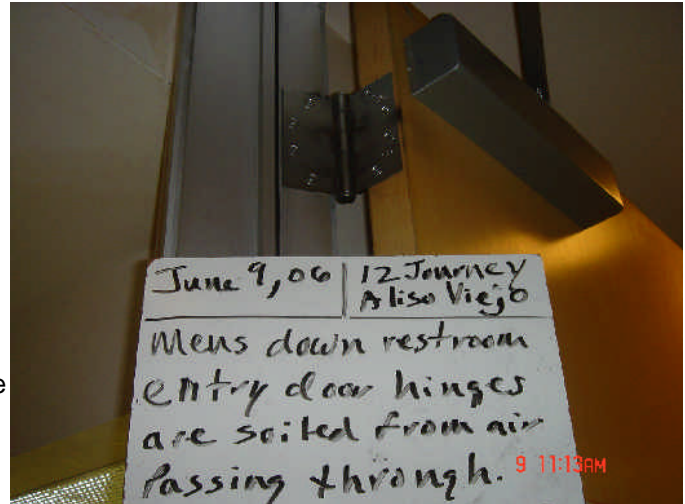 June 9, 06
12 Journey
Aliso Viejo
Mens down restroom
entry door hinges
are soiled from air
Passing through.
9 11:13AM
e